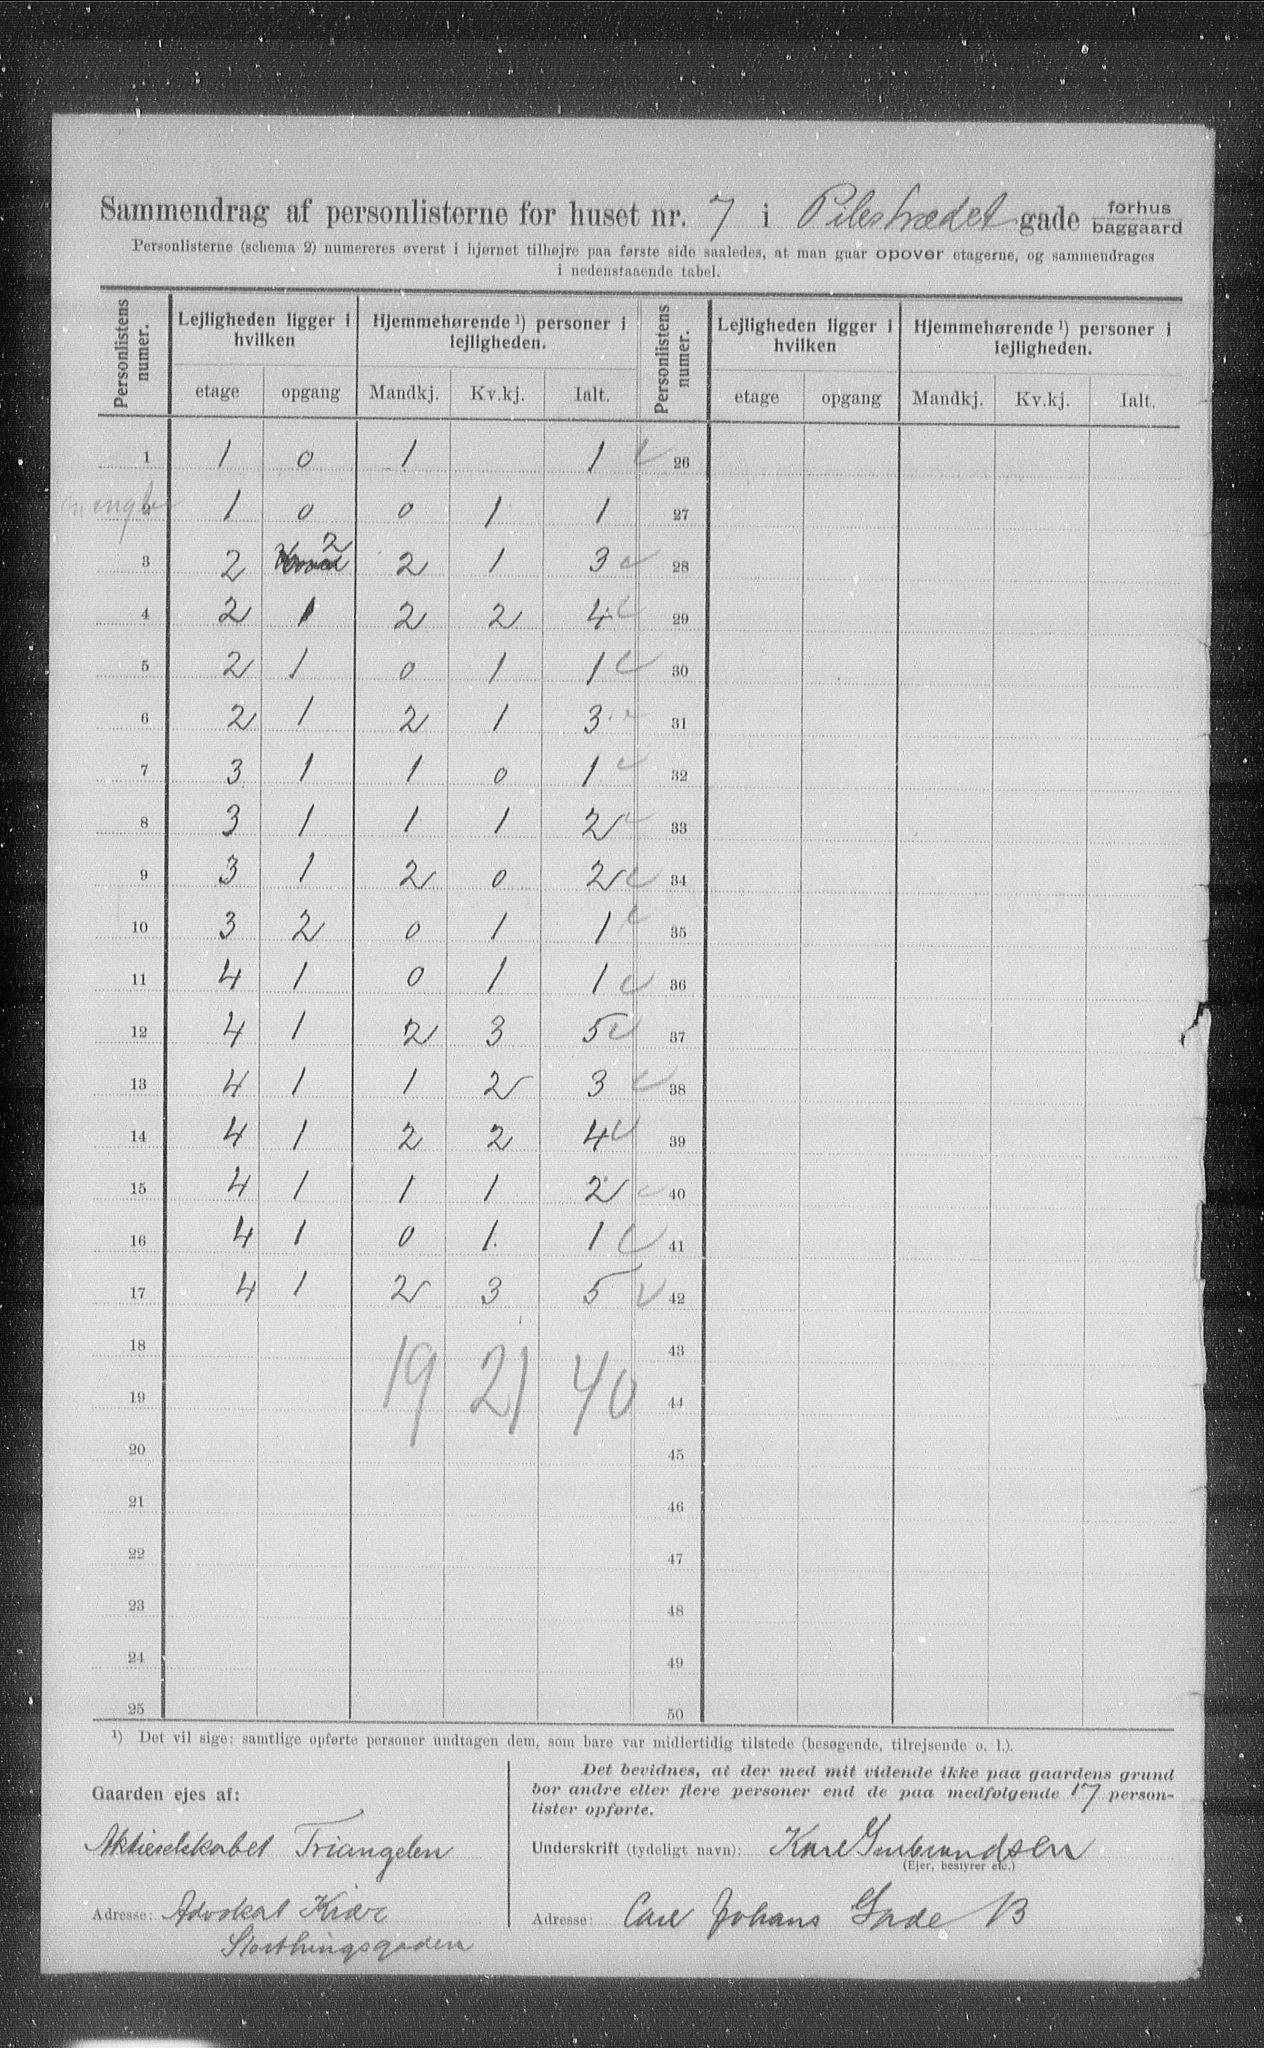 Sammendrag af personlisterne for huset nr. 7 i Pilestrædet gade forhus baggaard
Personlisterne (schema 2) numereres øverst i hjørnet tilhøjre paa første side saaledes, at man gaar opover etagerne, og sammendrages
i nedenstaaende tabel.
Personlistens numer. Lejligheden ligger i hvilken Hjemmehørende ¹) personer i lejligheden. Personlistens numer. Lejligheden ligger i hvilken Hjemmehørende ¹) personer i lejligheden.
etage opgang Mandkj. Kv.kj. Ialt. etage opgang Mandkj. Kv.kj. Ialt.
1 1 0 1 1 26
mangler 2 1 0 0 1 1 27
3 2 2 2 1 3 28
4 2 1 2 2 4 29
5 2 1 0 1 1 30
6 2 1 2 1 3 31
7 3 1 1 0 1 32
8 3 1 1 1 2 33
9 3 1 2 0 2 34
10 3 2 0 1 1 35
11 4 1 0 1 1 36
12 4 1 2 3 5 37
13 4 1 1 2 3 38
14 4 1 2 2 4 39
15 4 1 1 1 2 40
16 4 1 0 1 1 41
17 4 1 2 3 5 42
18 43
19 21 40
19 44
20 45
21 46
22 47
23 48
24 49
25 50
¹) Det vil sige: samtlige opførte personer undtagen dem, som bare var midlertidig tilstede (besøgende, tilrejsende o. l.).
Gaarden ejes af:
Aktieselskabet Triangelen
Adresse: Advokat Kiær
Storthingsgaden
Det bevidnes, at der med mit vidende ikke paa gaardens grund
bor andre eller flere personer end de paa medfølgende 17 person-
lister opførte.
Underskrift (tydeligt navn): Karl Gulbrandsen
(Ejer, bestyrer etc.)
Adresse: Carl Johans Gade 13